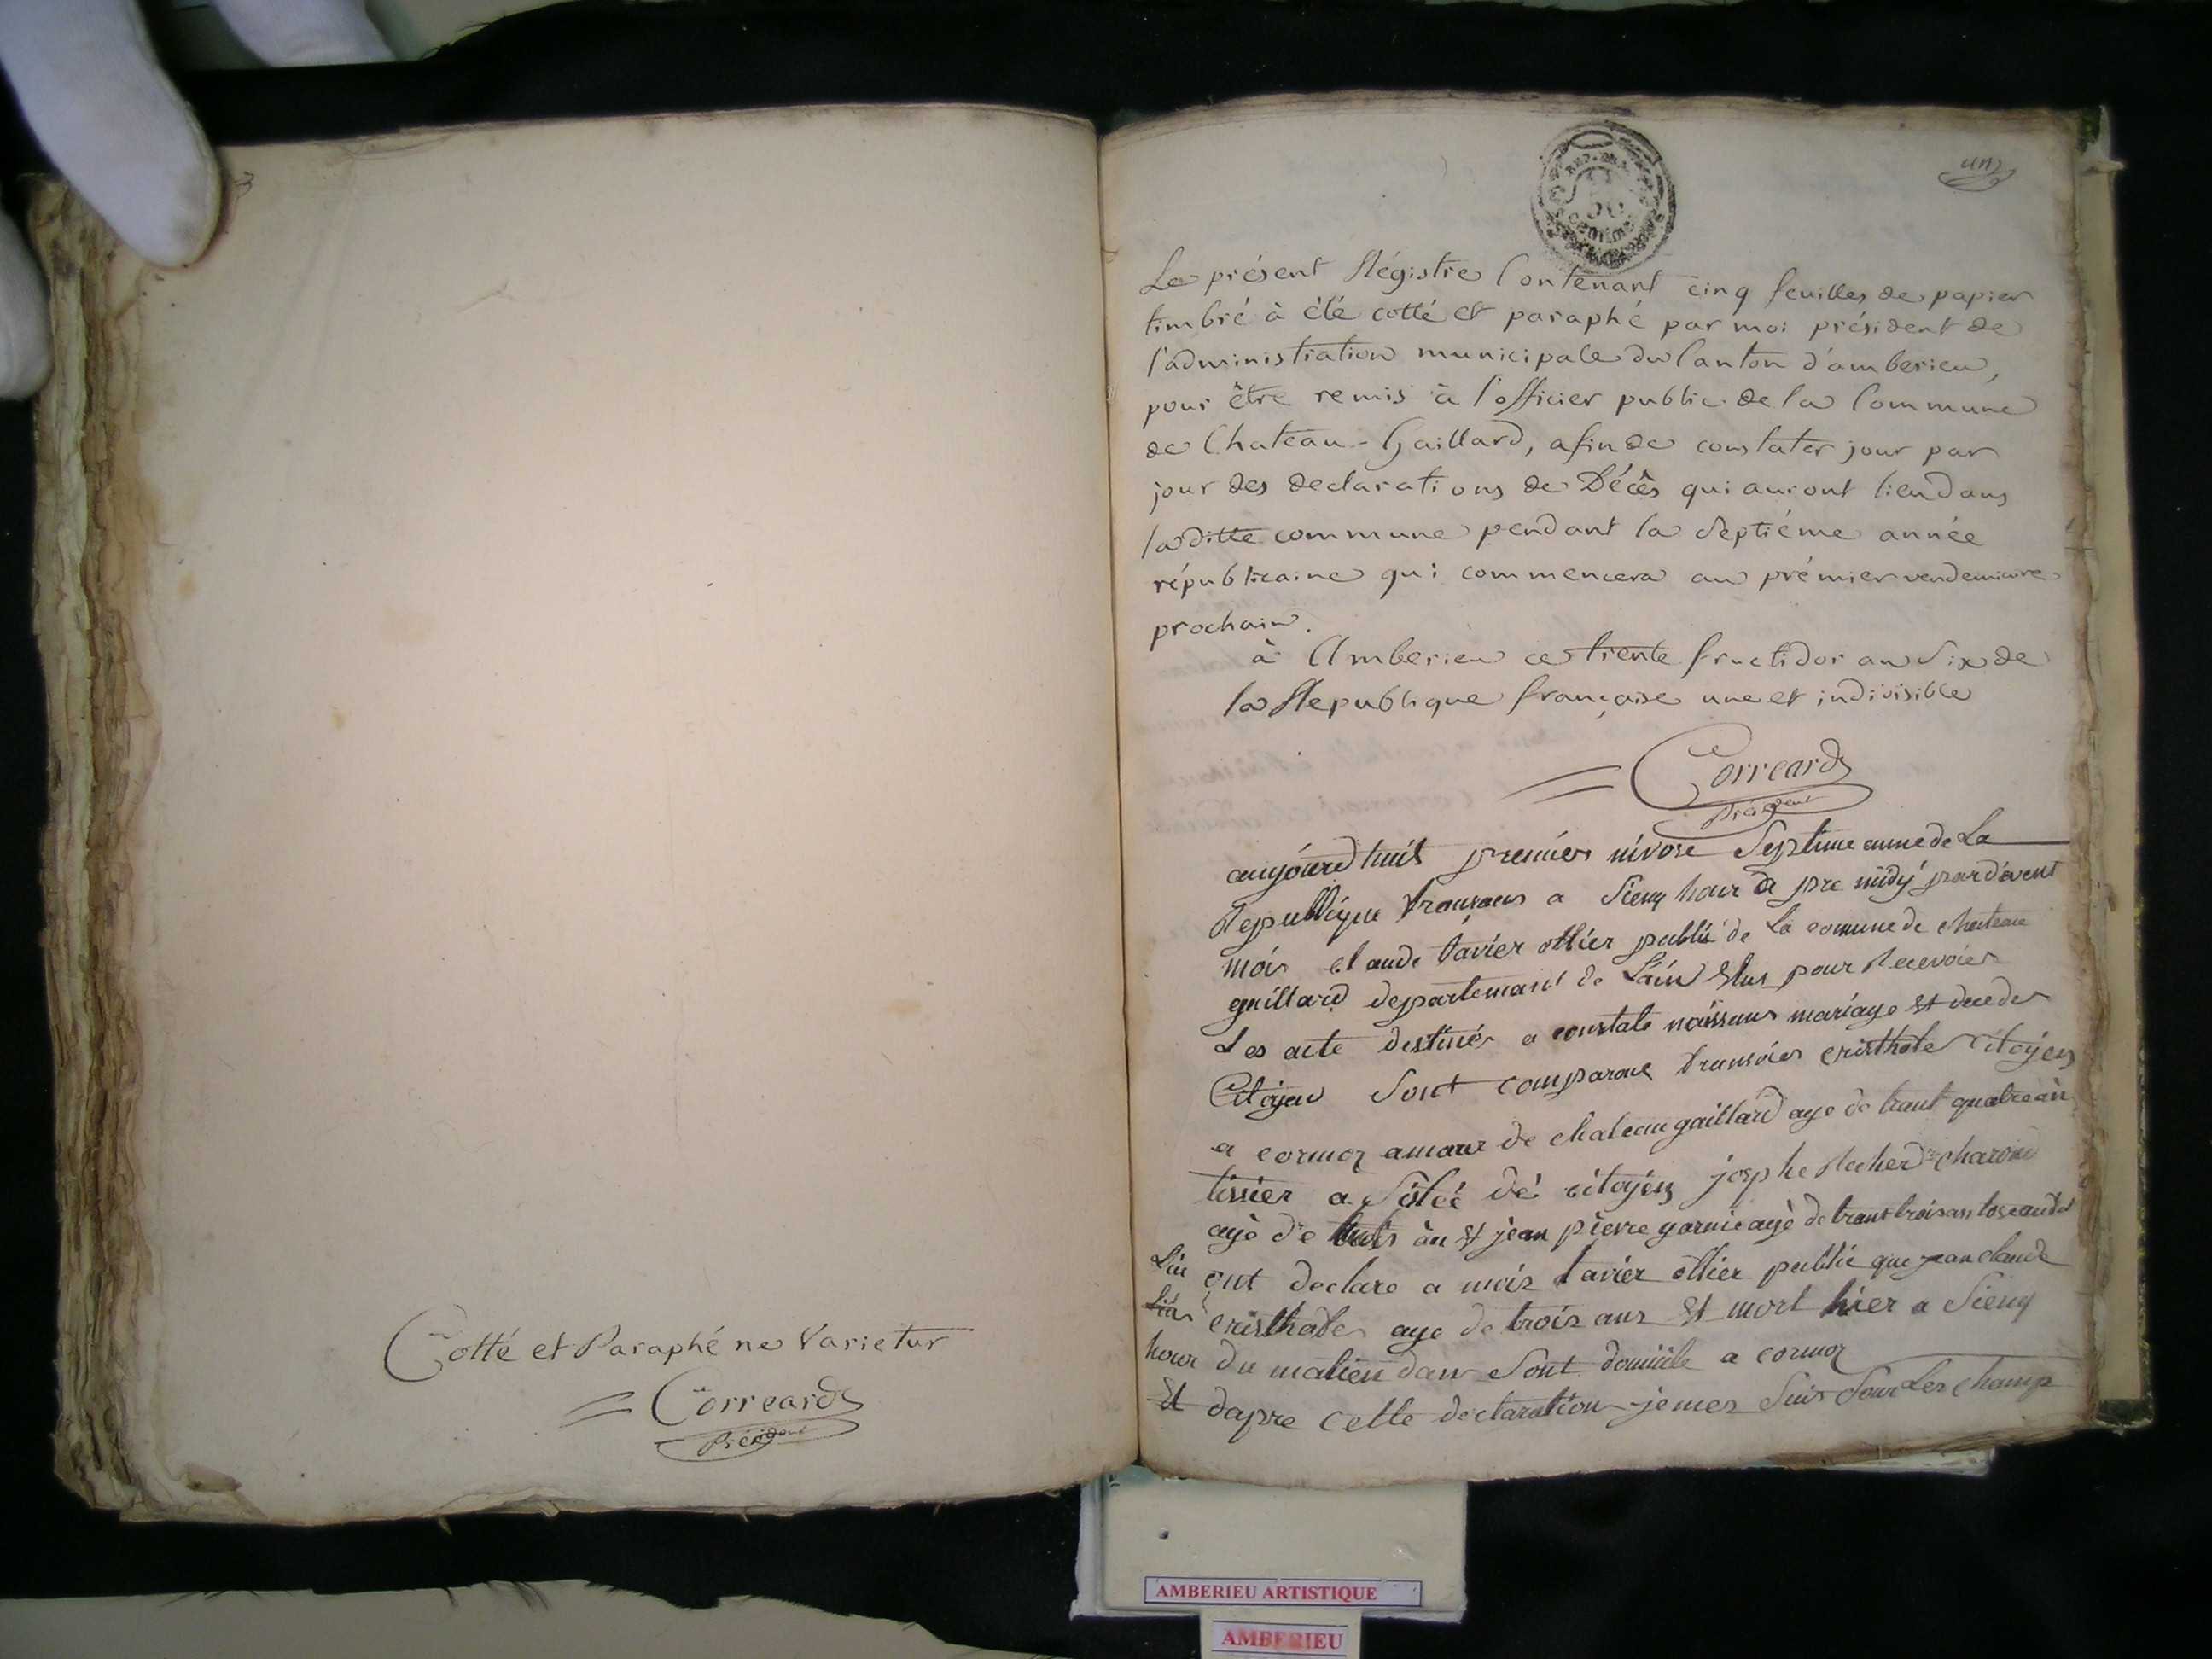 Cotté et Paraphé ne Varietur
Correard
Président
un
50
CENTIMES
Le présent Régistre Contenant cinq feuilles de papier
timbré à été cotté et paraphé par moi président de
l'administration municipale du Canton d'amberieu,
pour être remis à l'officier public de la Commune
de Chateau-Gaillard, afin de constater jour par
jour des declarations de Décès qui auront lieu dans
la ditte commune pendant la Septiéme année
républicaine qui commencera au prémier vendemiaire
prochain.
à Amberieu ce trente fructidor an Six de
la Republique française une et indivisible
Correard
Président
aujourd huit premier nivose Septime anneede La
Republique a Sienq hour pre midy pardevent
mois claude tavier offier publii de La comune de chateau
gaillard departemant de Lain Elus pour Recevoier
Les acte destinés a constate naissans mariage Et decedes
Citoyen Sont comparue cristhole citoyen
a cormoz de chateaugaillard age de trant quatre an
tissier a Sisteé dé citoyen josphe
agè de an et jean pierre garnie agè de trant trois ans
Lin ont declare a mois tavier offier publii que jean claude
cristhole age de trois ans Et mort hier a Sienq
hour du matien dans Sont domiiile a cormoz
Et dapre cette declaration jemes Suis Sour Les champ
AMBERIEU ARTISTIQUE
AMBERIEU